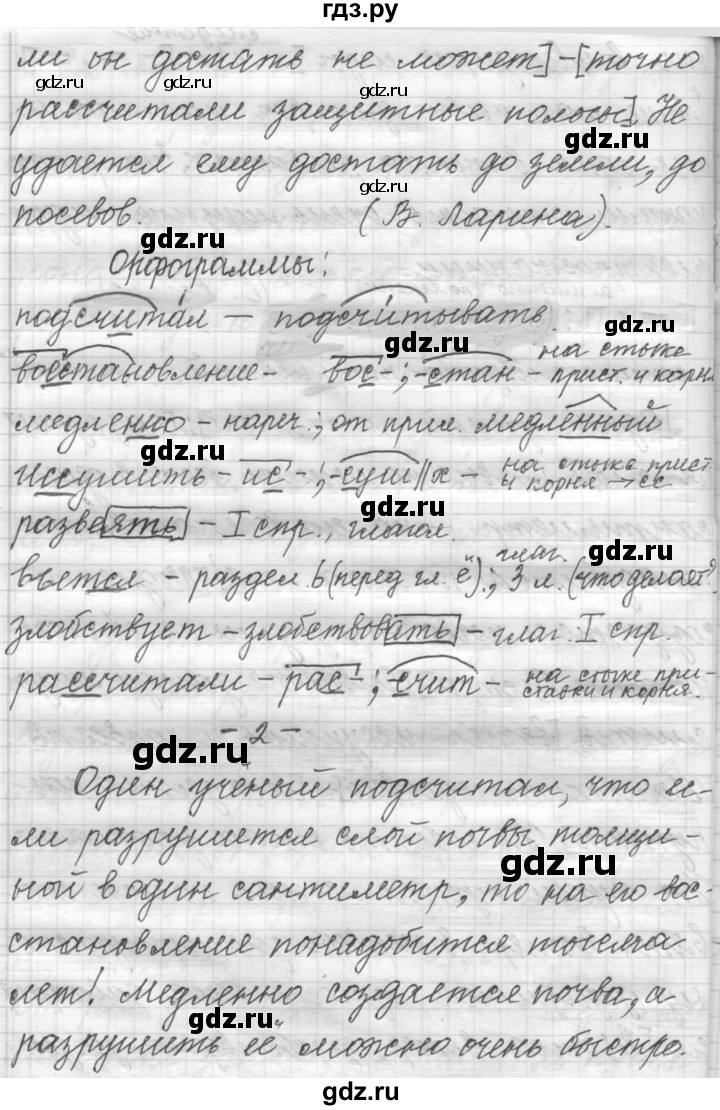 гдз.ру
ли он достать не может] - [точно
рассчитали защитные полосы]. Не
удается ему достать до земли, до
посевов. (В. Ларина).
Орфограммы:
подсчитал — подсчитывать
восстановление - вос- ; -стан - на стыке прист. и корня
медленно - нареч.; от прил. медленный
иссушить - ис- ; -суш//х - на стыке прист и корня → сс
развеять - I спр., глагол.
вьется - раздел. ь (перед гл. ё"); глаг. 3 л. (что делает?
злобствует - злобствовать - глаг. I спр.
рассчитали - рас- ; счит - на стыке при-
ставки и корня.
- 2 -
Один учёный подсчитал, что ес-
ли разрушится слой почвы толщи-
ной в один сантиметр, то на его вос-
становление понадобится тысяча
лет! Медленно создается почва, а
разрушить её можно очень быстро.
gdz.ru